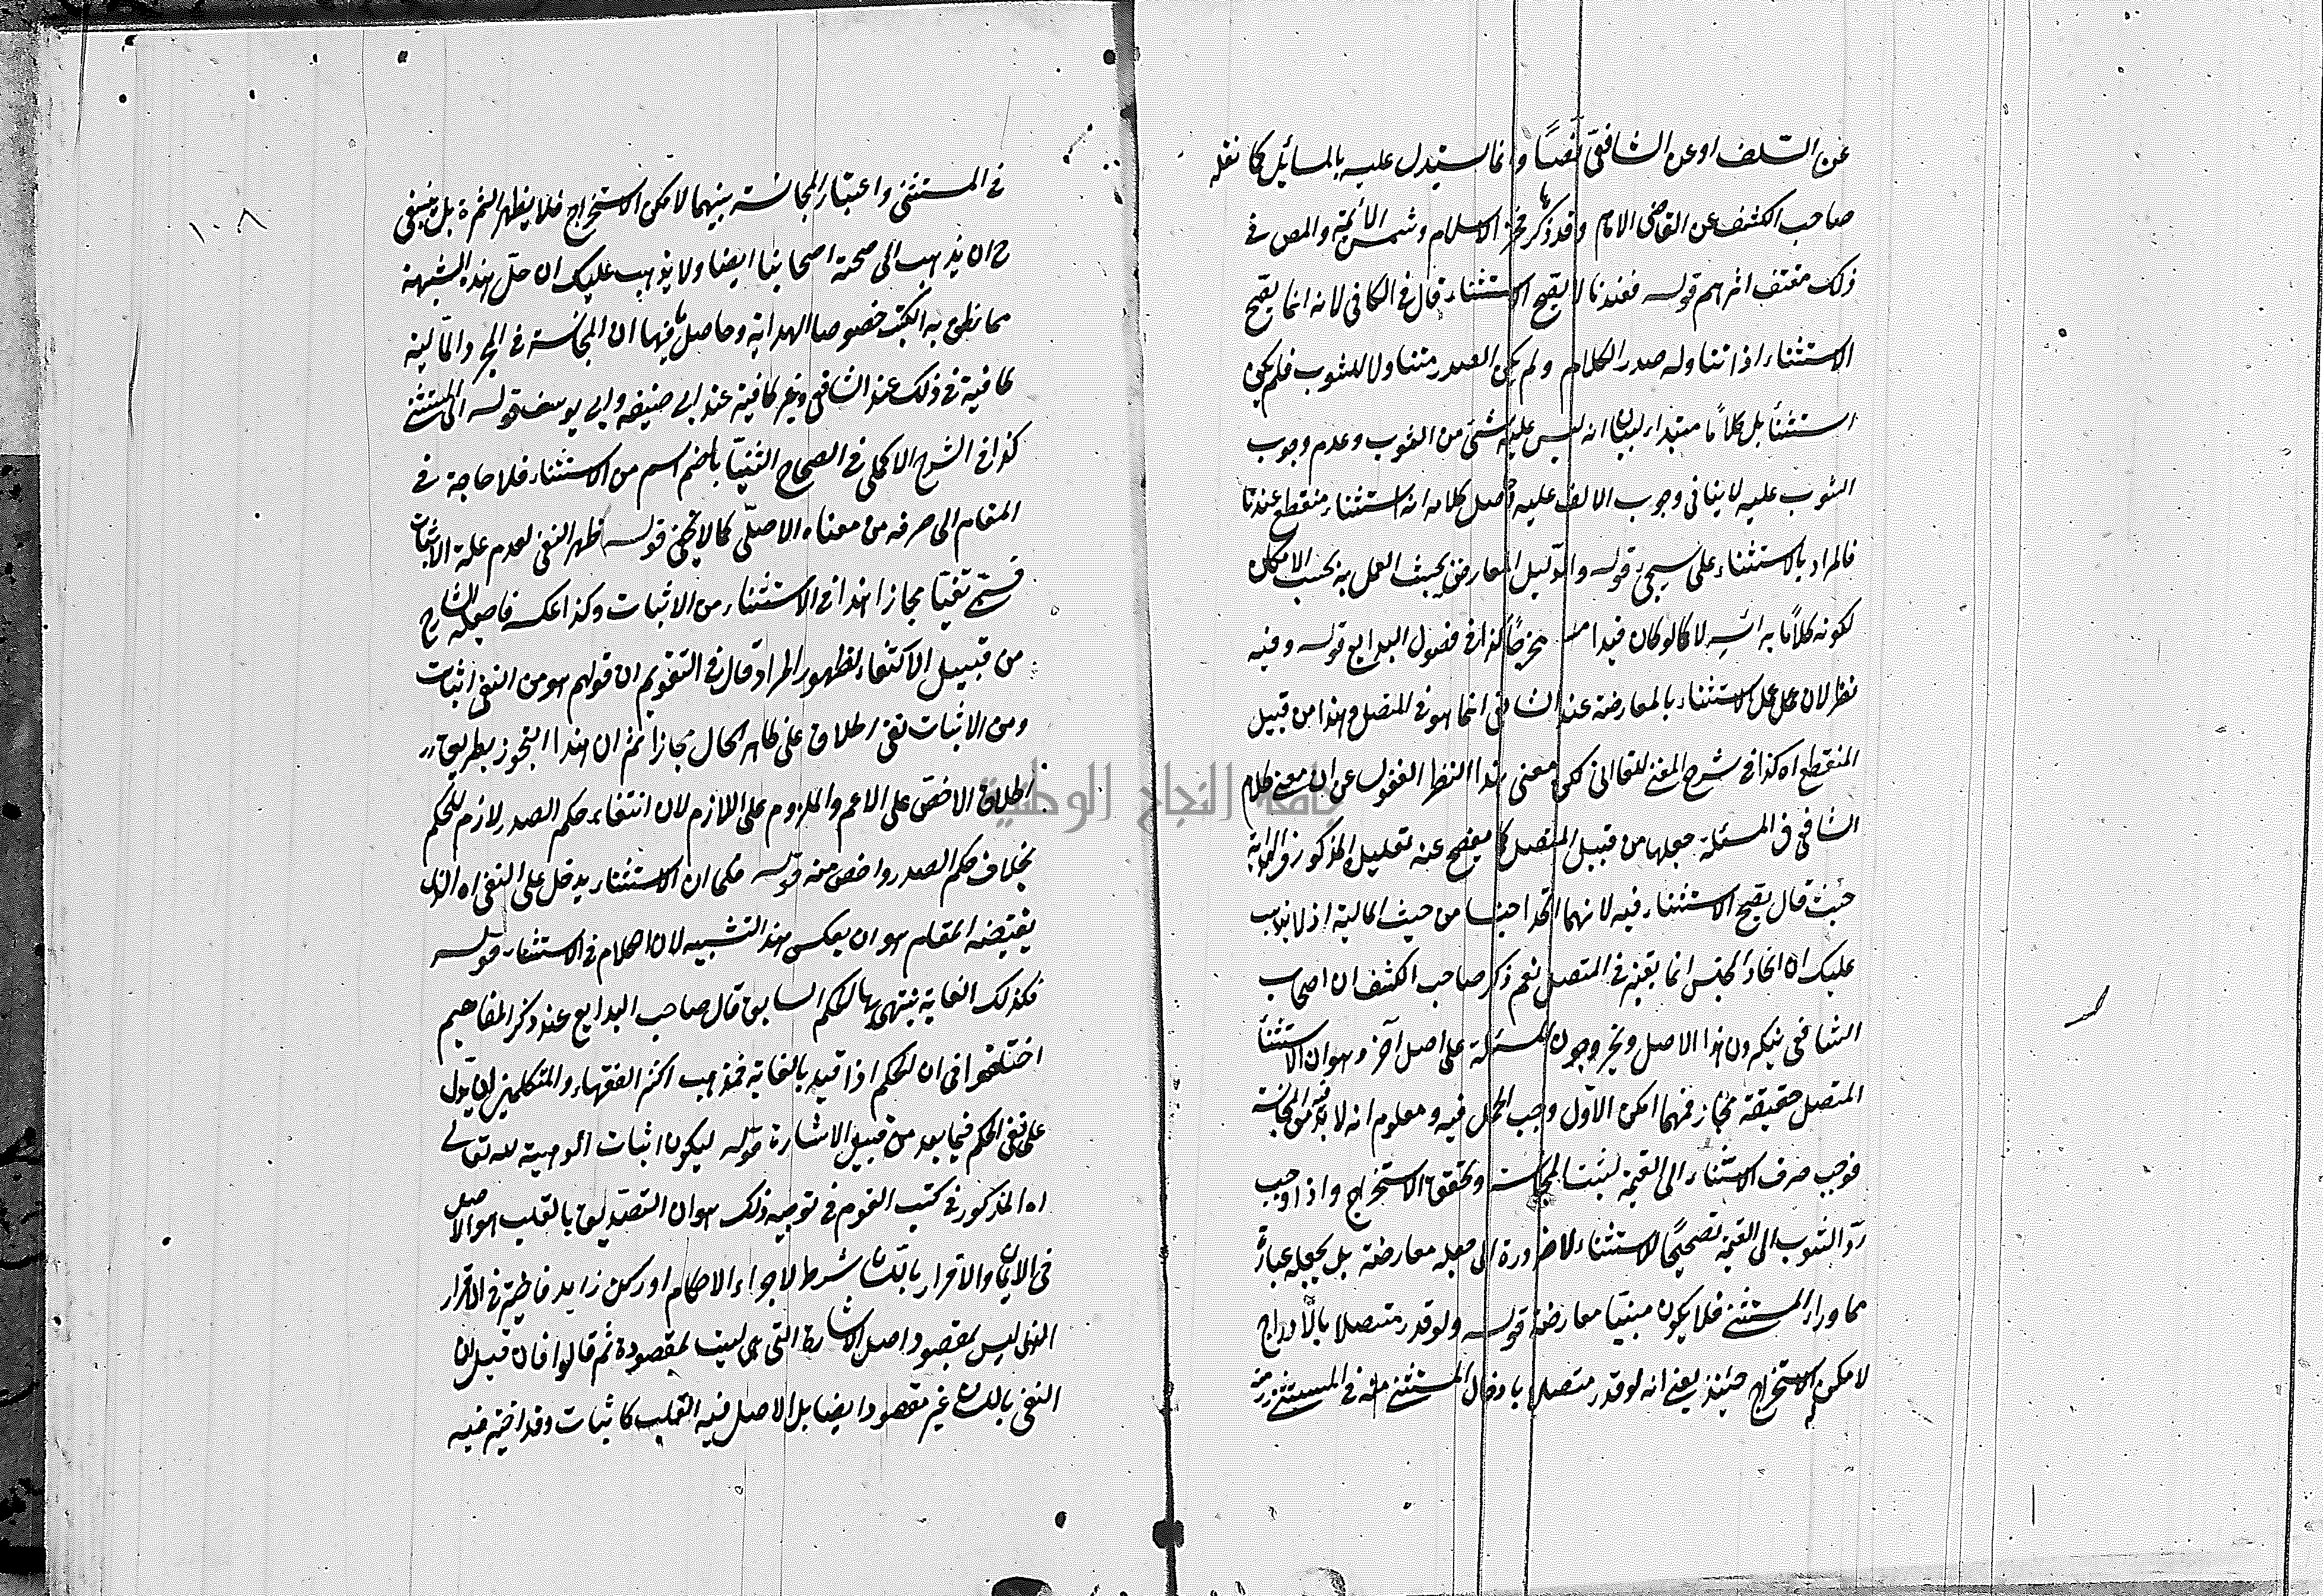 عن السلف او عن الشافعي نصا وانما يستدل عليه بالمسائل كما نقله
صاحب الكشف عن القاضي الامام وقد ذكر فخر الاسلام وشمس الائمة والمص في
ذلك مقتف اثرهم قوله فعندنا لا يصح الاستثناء قال في الكافي لانه انما يصح
الاستثناء اذا تناوله صدر الكلام ولم يكن الصدر متناولا للثوب فلم يكن
استثنأ بل كلاما مبتدا لبيان انه ليس عليه شئ من الثوب وعدم وجوب
الثوب عليه لا ينافي وجوب الالف عليه وحصل كلامه انه استثناء منقطع عندنا
فالمراد بالاستثناء على سيجئ قوله والدليل المعارض يجب العمل به بحسب الامكان
لكونه كلاما برأسه لا كما لو كان قيدا مخرجا كذا في فصول البدايع قوله وفيه
نظر لان عمل الاستثناء بالمعارضة عند الشافعي انما هو في المتصل وهذا من قبيل
المنقطع اه كذا في شرح المغني للقاآني لكن معنى هذا النظر الغفول عن ان معنى كلام
الشافعي في المسئلة جعلها من قبيل المتصل كما يفصح عنه تعليل المذكور في الهداية
حيث قال يصح الاستثناء فيه لانهما اتحدا جنسا من حيث المالية اذ لا يذهب
عليك ان اتحاد الجنس انما يعتبر في المتصل نعم ذكر صاحب الكشف ان اصحاب
الشافعي ينكرون هذا الاصل ويخرجون المسئلة على اصل آخر وهو ان الاستثنأ
المتصل حقيقة مجاز فمهما امكن الاول وجب الحمل فيه ومعلوم انه لا بد فيه من المجانسة
فوجب صرف الاستثناء الى القيمة لتثبت المجانسة ويتحقق الاستخراج واذا وجب
رد الثوب الى القيمة تصحيحا للاستثناء لا ضرورة الى جعله معارضة بل يجعله عبارة
عما وراء المستثنى فلا يكون مبنيا معارضة قوله ولو قدر متصلا بالادراج
لا يمكن الاستخراج حينئذ يعني انه لو قدر متصلا بادخال المستثنى منه في المستثنى
١٠٨
في المستثنى واعتبار المجانسة بينهما لا يمكن الاستخراج فلا يظهر الثمرة بل ينبغي
ح ان يذهب الى صحته اصحابنا ايضا ولا يذهب عليك ان حل هذه الشبهة
مما نطق به الكتب خصوصا الهداية وحاصل ما فيها ان المجانسة في المجرد المالية
كافية في ذلك عند الشافعي وغير كافية عند ابي حنيفة وابي يوسف قوله الى المستثنى
كذا في الشرح الاكملي في الصحاح الثنيا بالضم اسم من الاستثناء فلا حاجة في
المقام الى صرفه من معناه الاصلي كما لا يخفى قوله ظهر النفي لعدم علة الاثبات
فسمي نفيا مجازا هذا في الاستثناء من الاثبات وكذا عكسه فاصلحه الشارح
من قبيل الاكتفاء لظهور المراد قال في التقويم ان قولهم هو من النفي اثبات
ومن الاثبات نفي اطلاق على ظاهر الحال مجازا ثم ان هذا التجوز بطريق
اطلاق الاخص على الاعم والملزوم على اللازم لان انتفاء حكم الصدر لازم للحكم
بخلاف حكم الصدر واخص منه قوله فكما ان الاستثناء يدخل على النفي اه الذي
يقتضيه المقام هو ان يعكس هذا التشبيه لان الكلام في الاستثناء قوله
فكذلك الغاية ينتهي بها الحكم السابق قال صاحب البدايع عند ذكر المفاهيم
اختلفوا في ان الحكم اذا قيد بالغاية فمذهب اكثر الفقهاء والمتكلمين ان يدل
على نفي الحكم فيما بعد من قبيل الاشارة قوله ليكون اثبات الوهية لله تعالى
اه المذكور في كتب القوم في توجيه ذلك هو ان التصديق بالقلب هو الاصل
في الايمان والاقرار باللسان شرط لاجراء الاحكام او ركن زايد فاختير في الاقرار
الذي ليس بمقصود اصل الاشارة التي هي ليست بمقصودة ثم قالوا فان قيل ان
النفي باللسان غير مقصود ايضا بل الاصل فيه القلب كالاثبات وقد اختير فيه
جامعة النجاح الوطنية